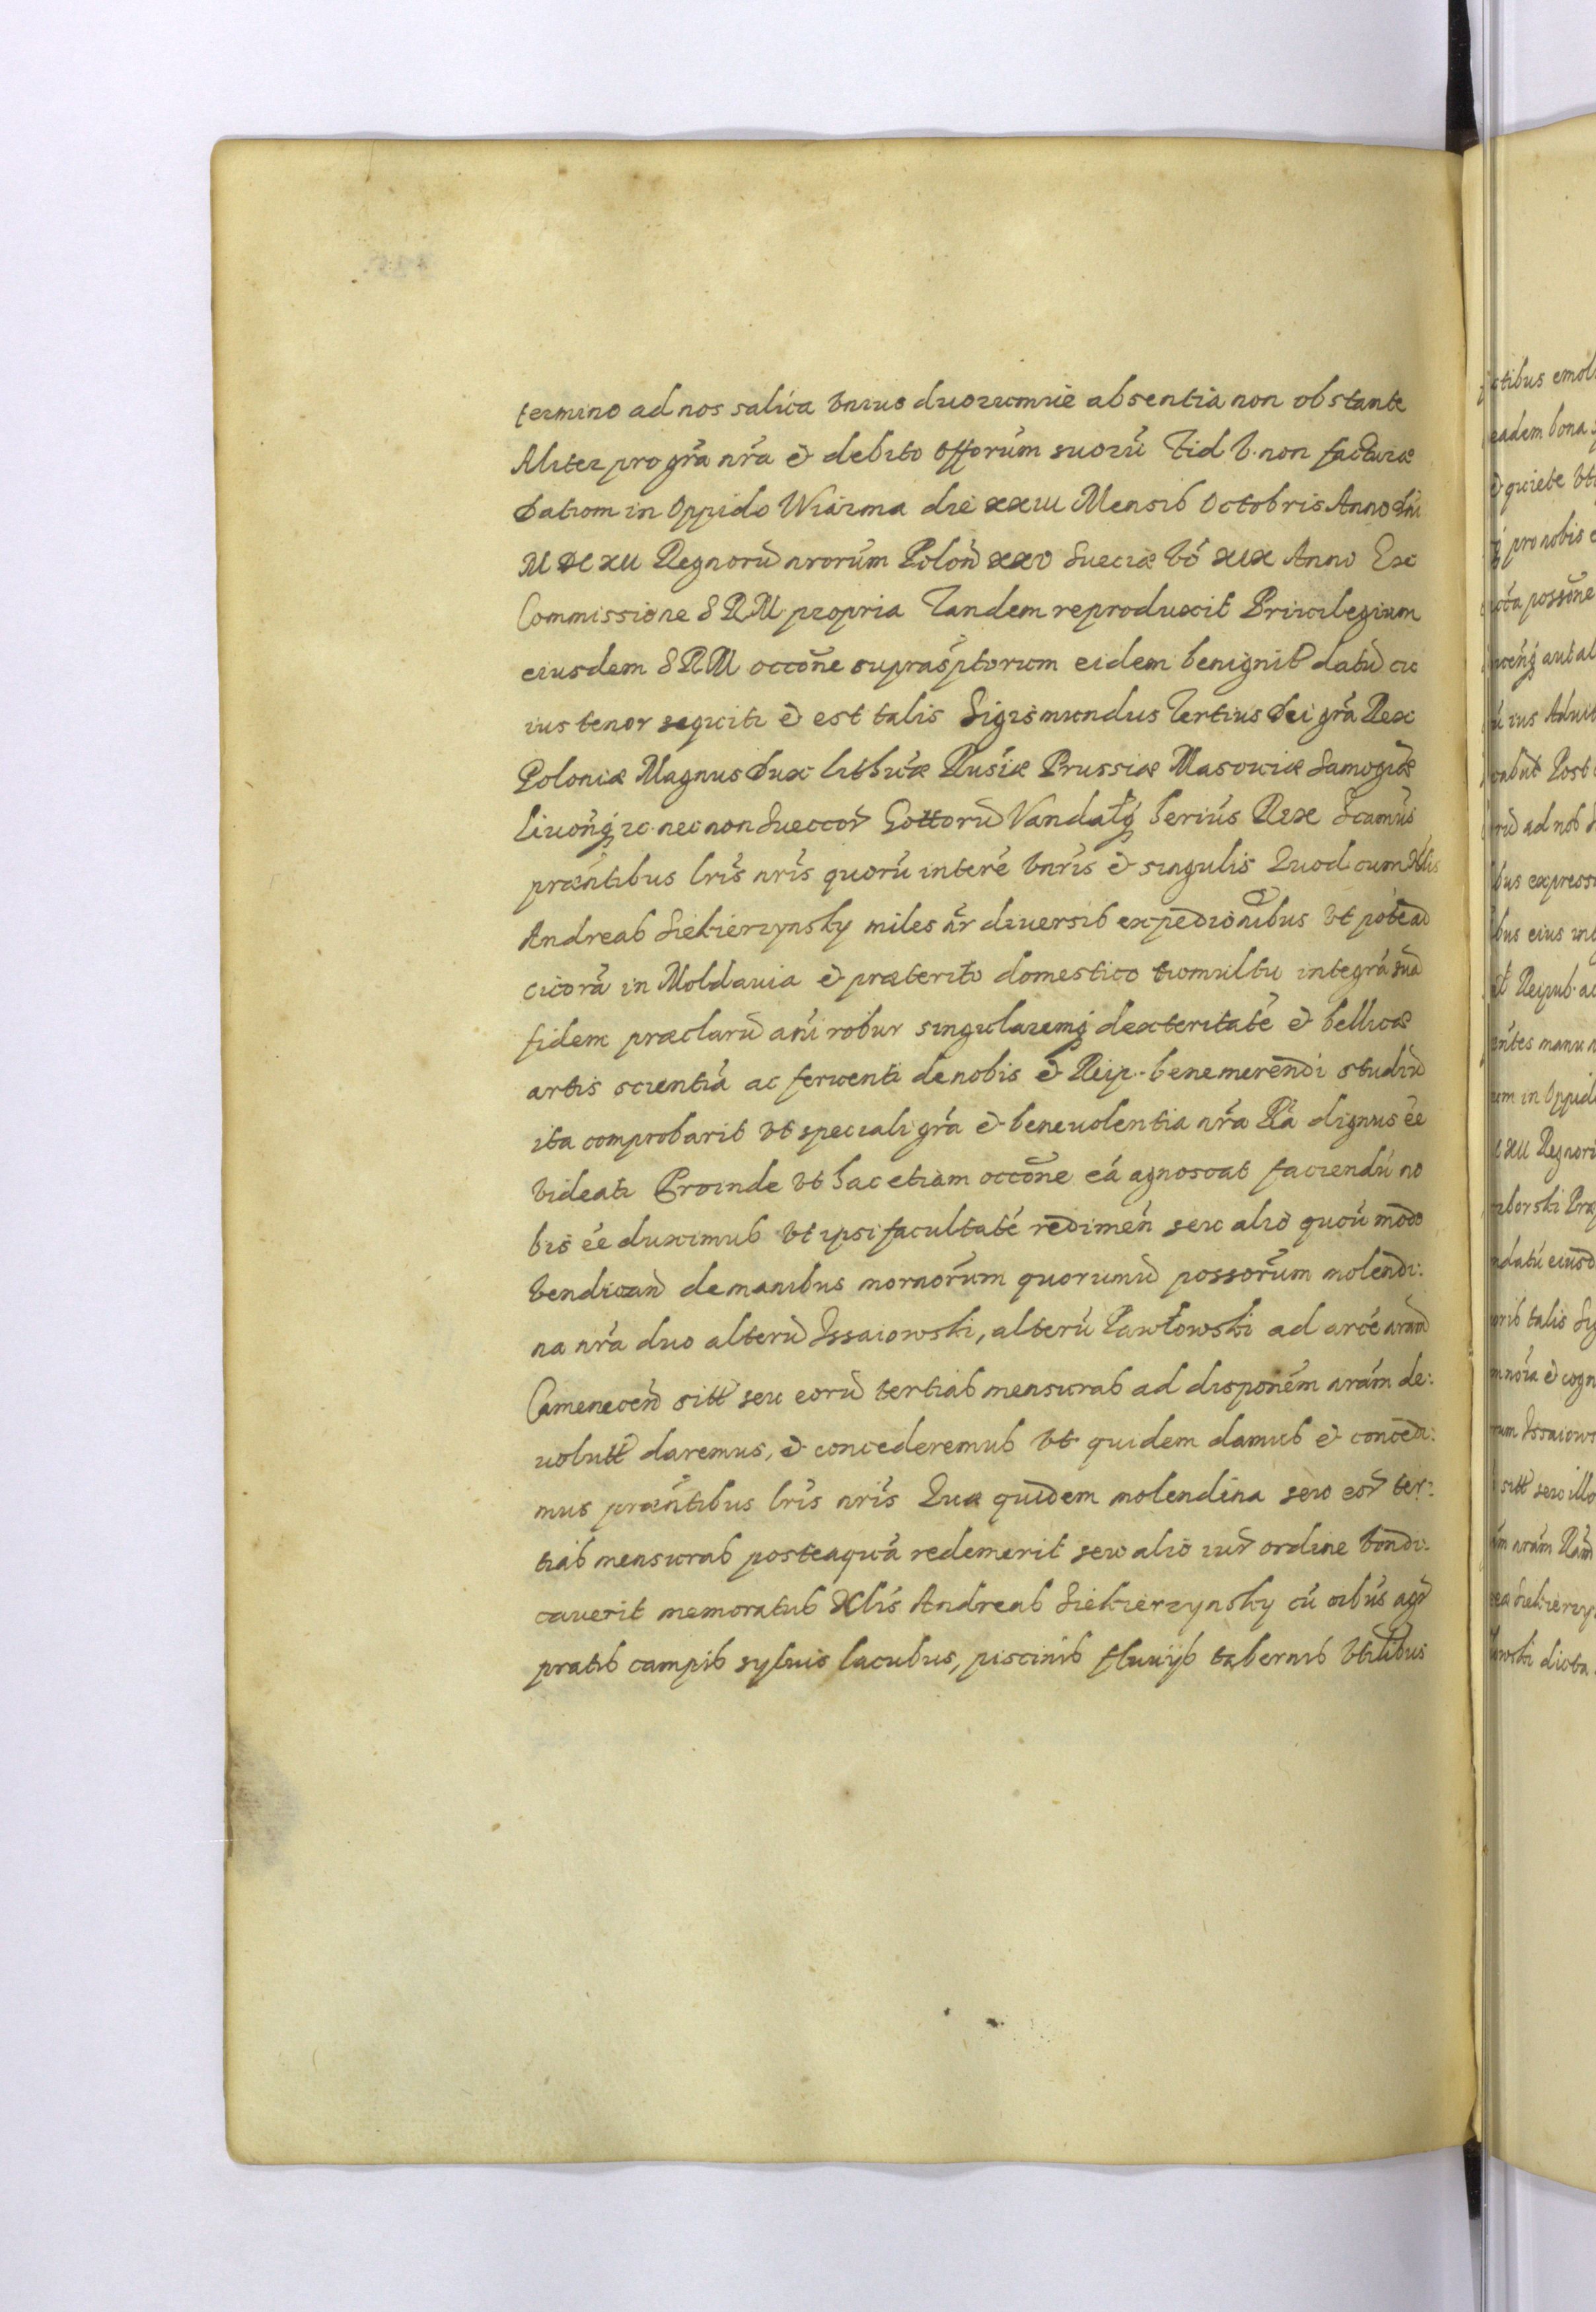 termino ad nos salua vnius duorumue absentia non obstante
Aliter pro gra nra & debito offorum suoru Fid. V. non facturæ
Datum in Oppido Wiazma die xxiii Mensis Octobris Anno Dni
M DC XII Regnoru nrorum Polon xxv Sueciæ vo xix Anno Ex
Commissione S R M propria Tandem reproduxit Priuilegium
eiusdem S R M occone suprasptorum eidem benignit datu cu
ius tenor sequitr & est talis Sigismundus Tertius Dei gra Rex
Poloniæ Magnus Dux Lithuæ Rusiæ Prussiæ Masouiæ Samogiæ
Liuonq zc. nec non Sueccor Gottoru Vandalq herius Rex Scamus
præntibus lris nris quoru intere vnris & singulis Quod cum Nlis
Andreas Siekierzynsky miles nr diuersis expedionibus vt pote ad
cicora in Moldauia & præterito domestico tumultu integra sua
fidem præclaru ani robur singularemq dexteritate & bellicæ
artis scientia ac feruenti de nobis & Reip. benemerendi studiu
ita comprobarit vt speciali gra & beneuolentia nra Ra dignus ee
videatr Proinde vt hac etiam occone ea agnoscat faciendu no
bis ee duximus vt ipsi facultate redimen seu alio quouu modo
vendican de manibus mornorum quorumu possorum molendi:
na nra duo alteru Issaiowski, alteru Pawłowski ad arce nram
Camenecen sitt seu eoru tertias mensuras ad disponem nram de:
uolutt daremus, & concederemus vt quidem damus & concedi:
mus præntibus lris nris Quæ quidem molendina seu eor ter:
tias mensuras posteaqua redemerit seu alio iur ordine vendi:
cauerit memoratus Nlis Andreas Siekierzynsky cu oibus agr
pratis campis syluis lacubus, piscinis fluuijs tabernis vtilibus